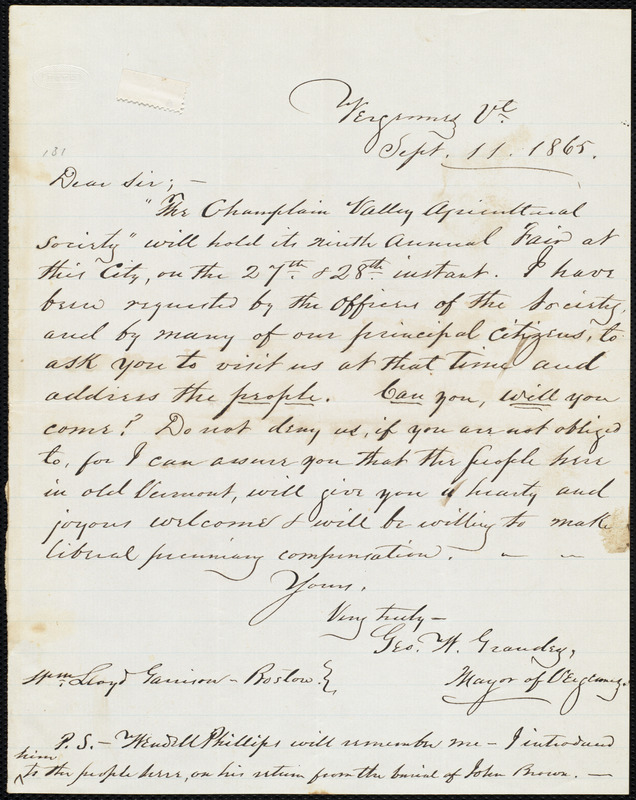 131
Vergennes Vt.
Sept. 11. 1865.
Dear Sir; —
"The Champlain Valley Agricultural
Society" will hold its ninth Annual Fair at
this City, on the 27th. & 28th. instant. I have
been requested by the Officers of the Society,
and by many of our principal citizens, to
ask you to visit us at that time and
address the people. Can you, will you
come? Do not deny us, if you are not obliged
to, for I can assure you that the people here
in old Vermont, will give you a hearty and
joyous welcome & will be willing to make
liberal pecuniary compensation. — —
Yours,
Very truly —
Geo. W. Grandey,
Mayor of Vergennes.
Wm. Lloyd Garrison — Boston. }
P.S. — Wendell Phillips will remember me — I introduced
him
to the people here, on his return from the burial of John Brown. —